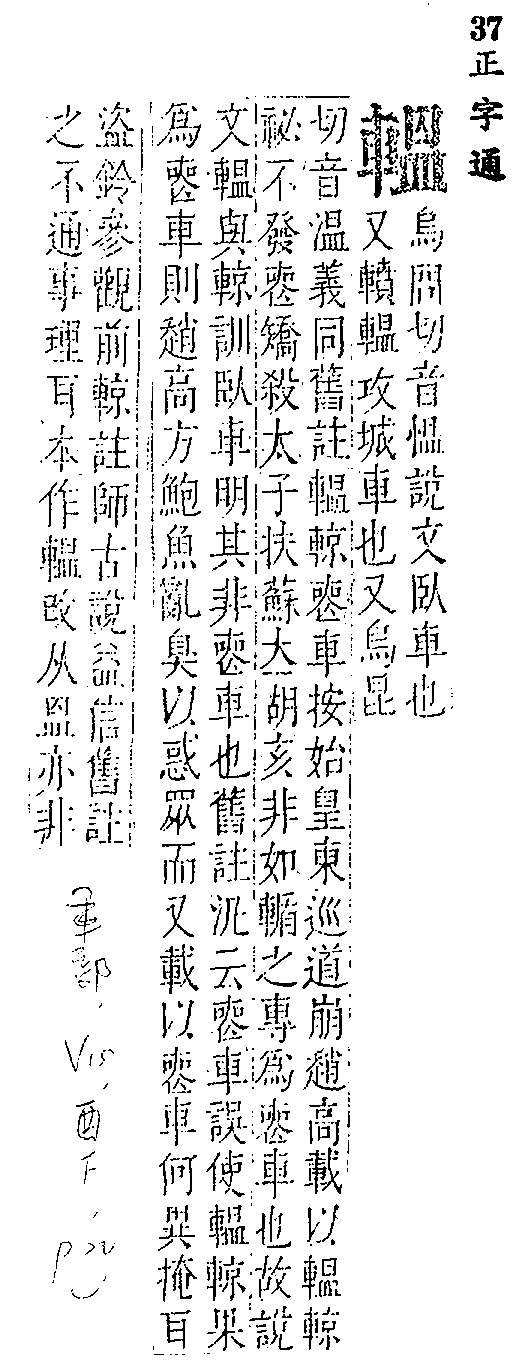 37正字通
轀
烏問切音愠說文臥車也
又轒轀攻城車也又烏昆
切音溫義同舊註轀輬喪車按始皇東巡道崩趙高載以轀輬
祕不發喪矯殺太子扶蘇大胡亥非如輴之專爲喪車也故說
文轀與輬訓臥車明其非喪車也舊註汎云喪車誤使轀輬果
爲喪車則趙高方鮑魚亂臭以惑眾而又載以喪車何異掩耳
盜鈴參觀前輬註師古說益信舊註
之不通事理耳本作轀改从昷亦非
車部, V15, 酉下,